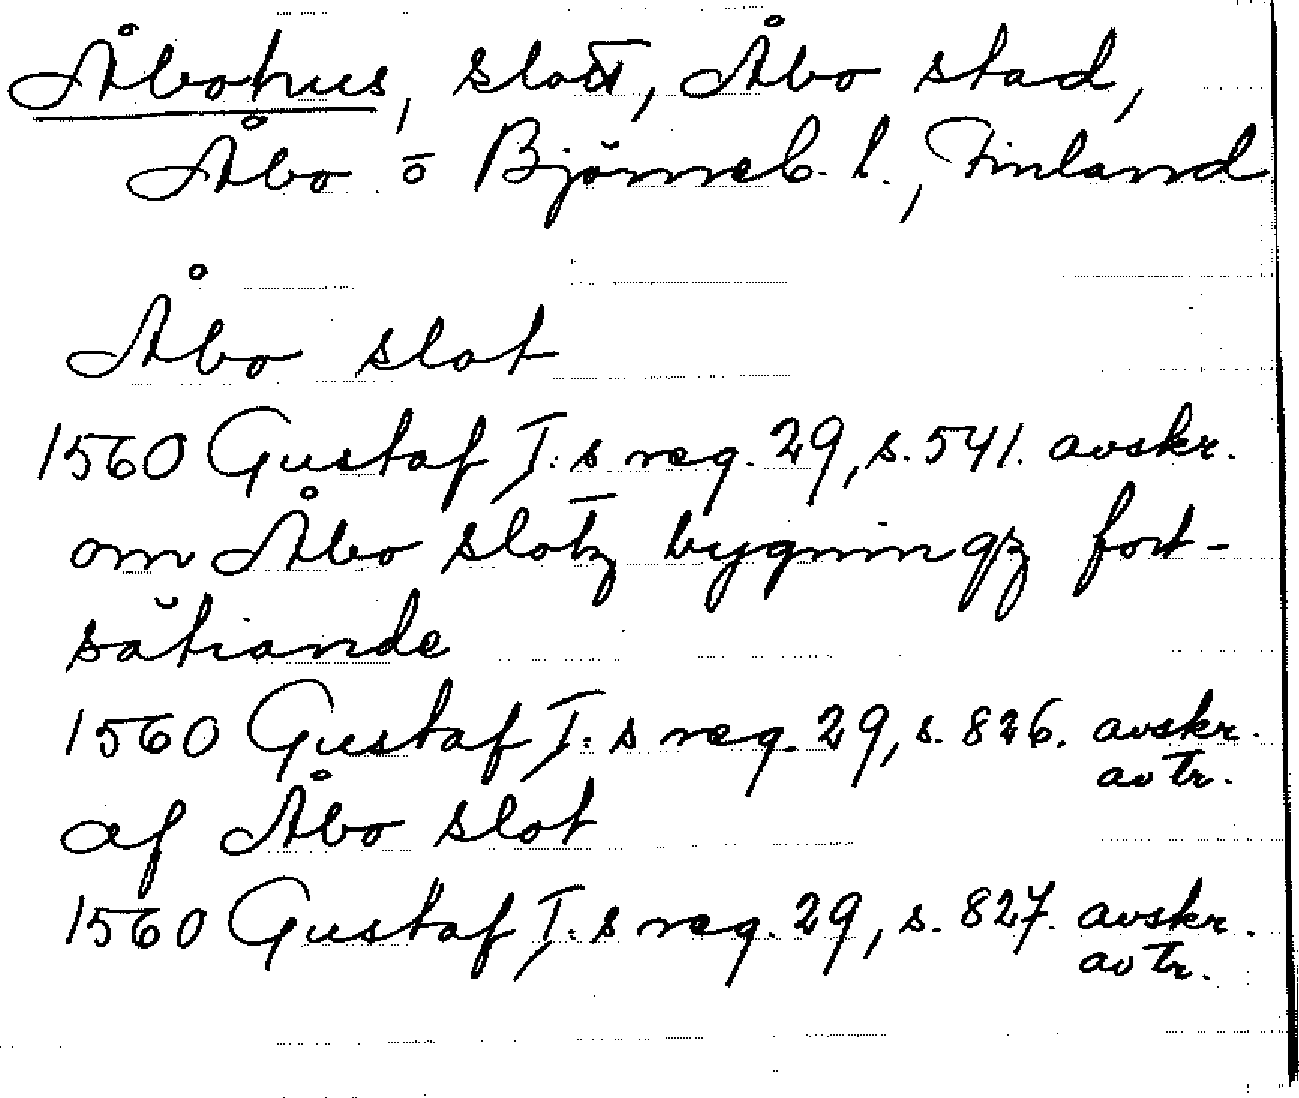 Åbohus, slott, Åbo stad,
Åbo o Björneb. l., Finland
Åbo slot
1560 Gustaf I:s reg. 29, s. 541. avskr.
om Åbo slotz bygningz fort-
sätiande
1560 Gustaf I:s reg. 29, s. 826. avskr.
av tr.
af Åbo slot
1560 Gustaf I:s reg. 29, s. 827. avskr.
av tr.